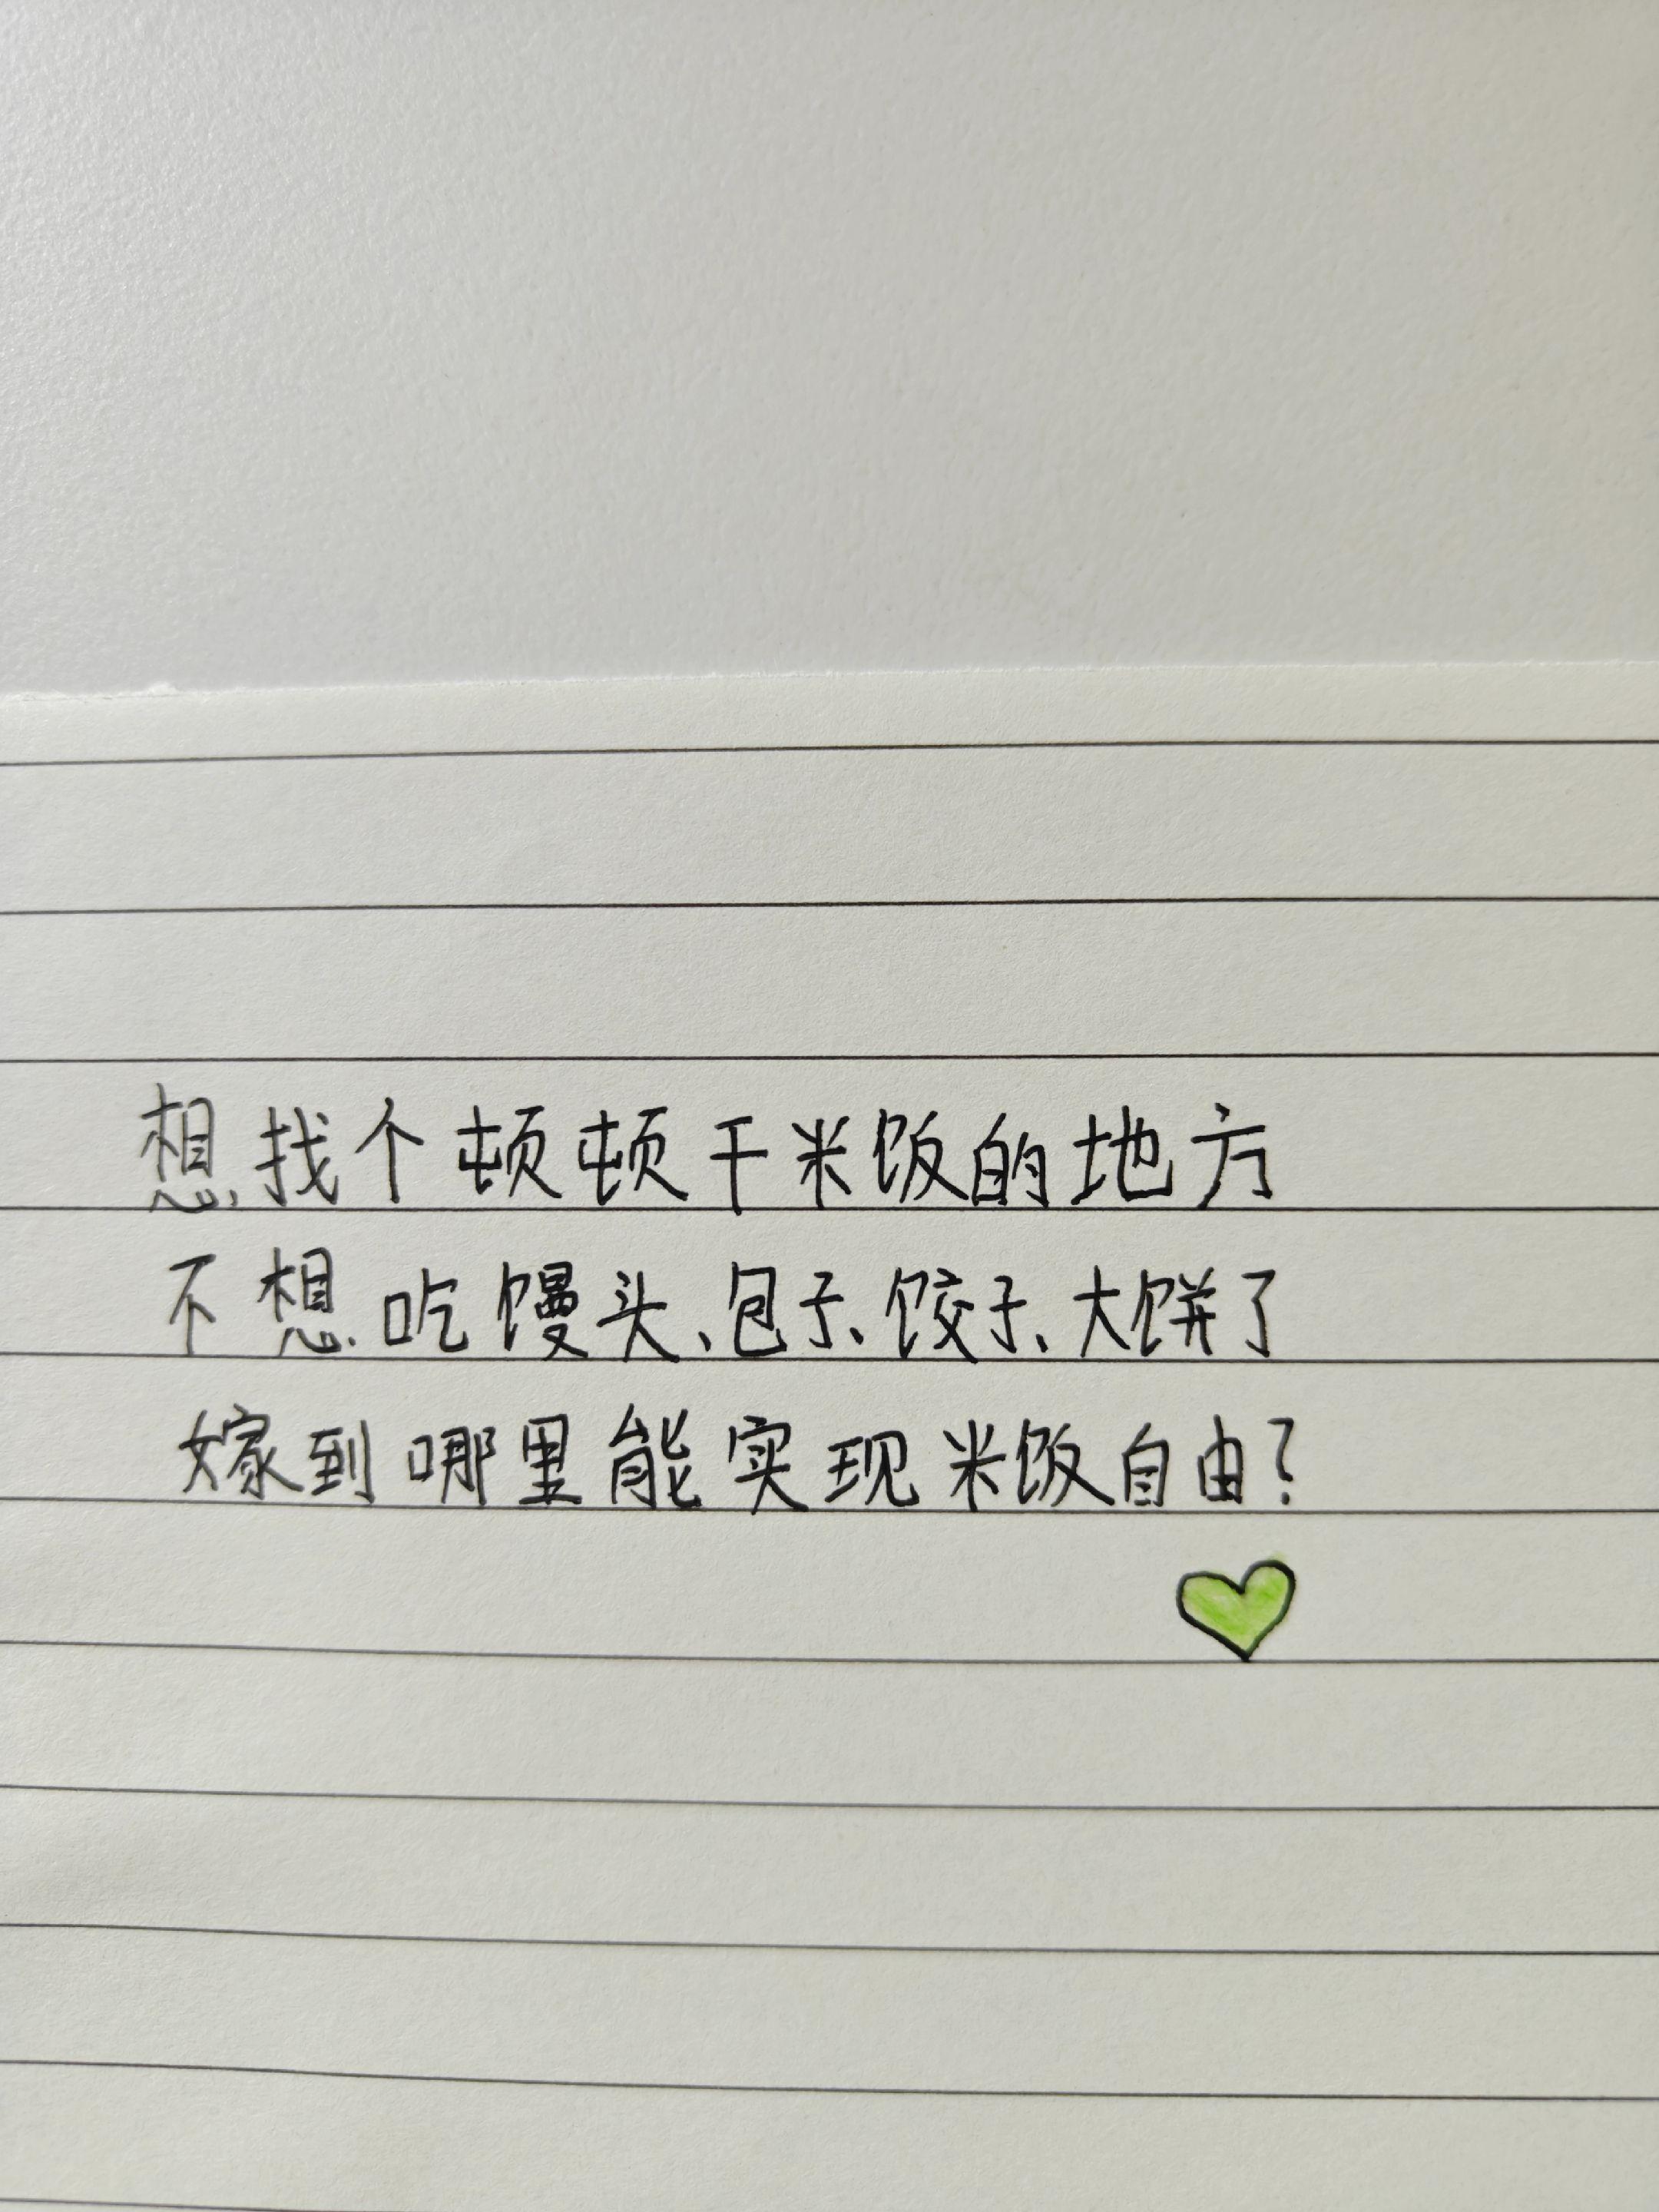 想找个顿顿干米饭的地方
不想吃馒头、包子、饺子、大饼了
嫁到哪里能实现米饭自由?